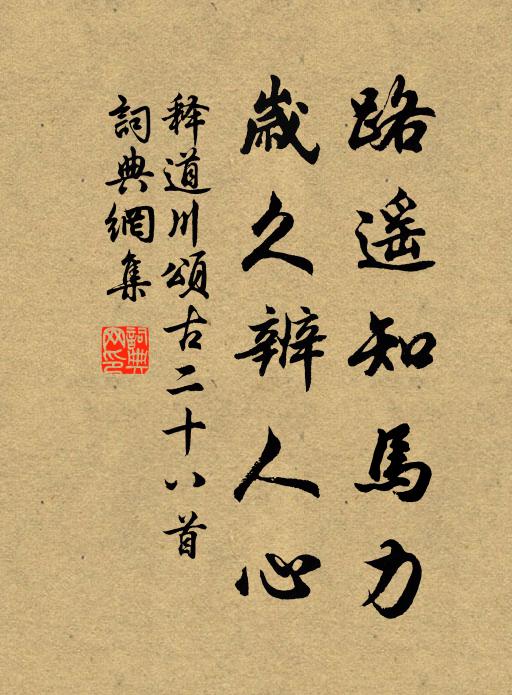 路遥知馬力
歲久辨人心
释道川頌古二十八首
詞典網集
詞典网印